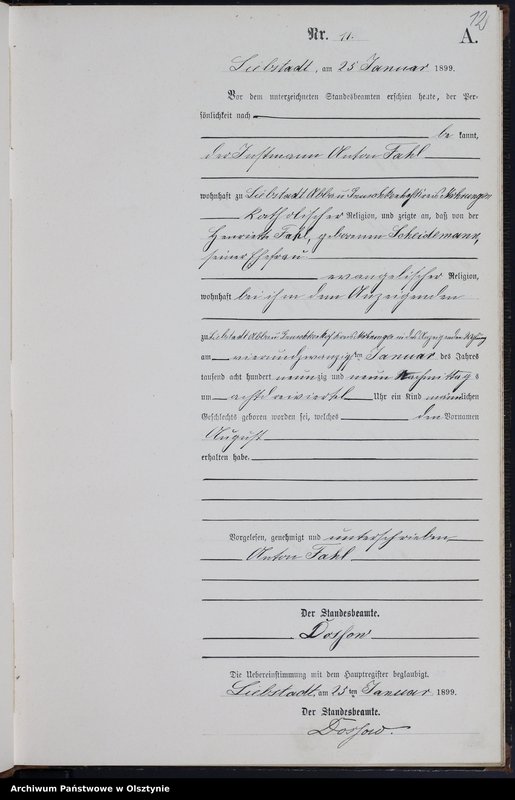 12
Nr. 11.
A.
Liebstadt, am 25 Januar 1899.
Vor dem unterzeichneten Standesbeamten erschien heute, der Per-
sönlichkeit nach
be kannt,
der Instmann Anton Fahl
wohnhaft zu Liebstadt Abbau Kreis Mohrungen
katholischer Religion, und zeigte an, daß von der
Henriette Fahl, geborenen Scheidemann,
seiner Ehefrau
evangelischer Religion,
wohnhaft bei ihm dem Anzeigenden
zu Liebstadt Abbau Kreis Mohrungen in des Anzeigenden Wohnung
am vierundzwanzigten Januar des Jahres
tausend acht hundert neunzig und neun Nachmittags
um achtdreiviertel Uhr ein Kind männlichen
Geschlechts geboren worden sei, welches den Vornamen
August
erhalten habe.
Vorgelesen, genehmigt und unterschrieben
Anton Fahl
Der Standesbeamte.
Dossow
Die Uebereinstimmung mit dem Hauptregister beglaubigt.
Liebstadt, am 25ten Januar 1899.
Der Standesbeamte.
Dossow.
Archiwum Państwowe w Olsztynie